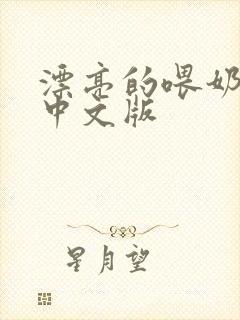 漂亮的喂奶
中文版
星月望